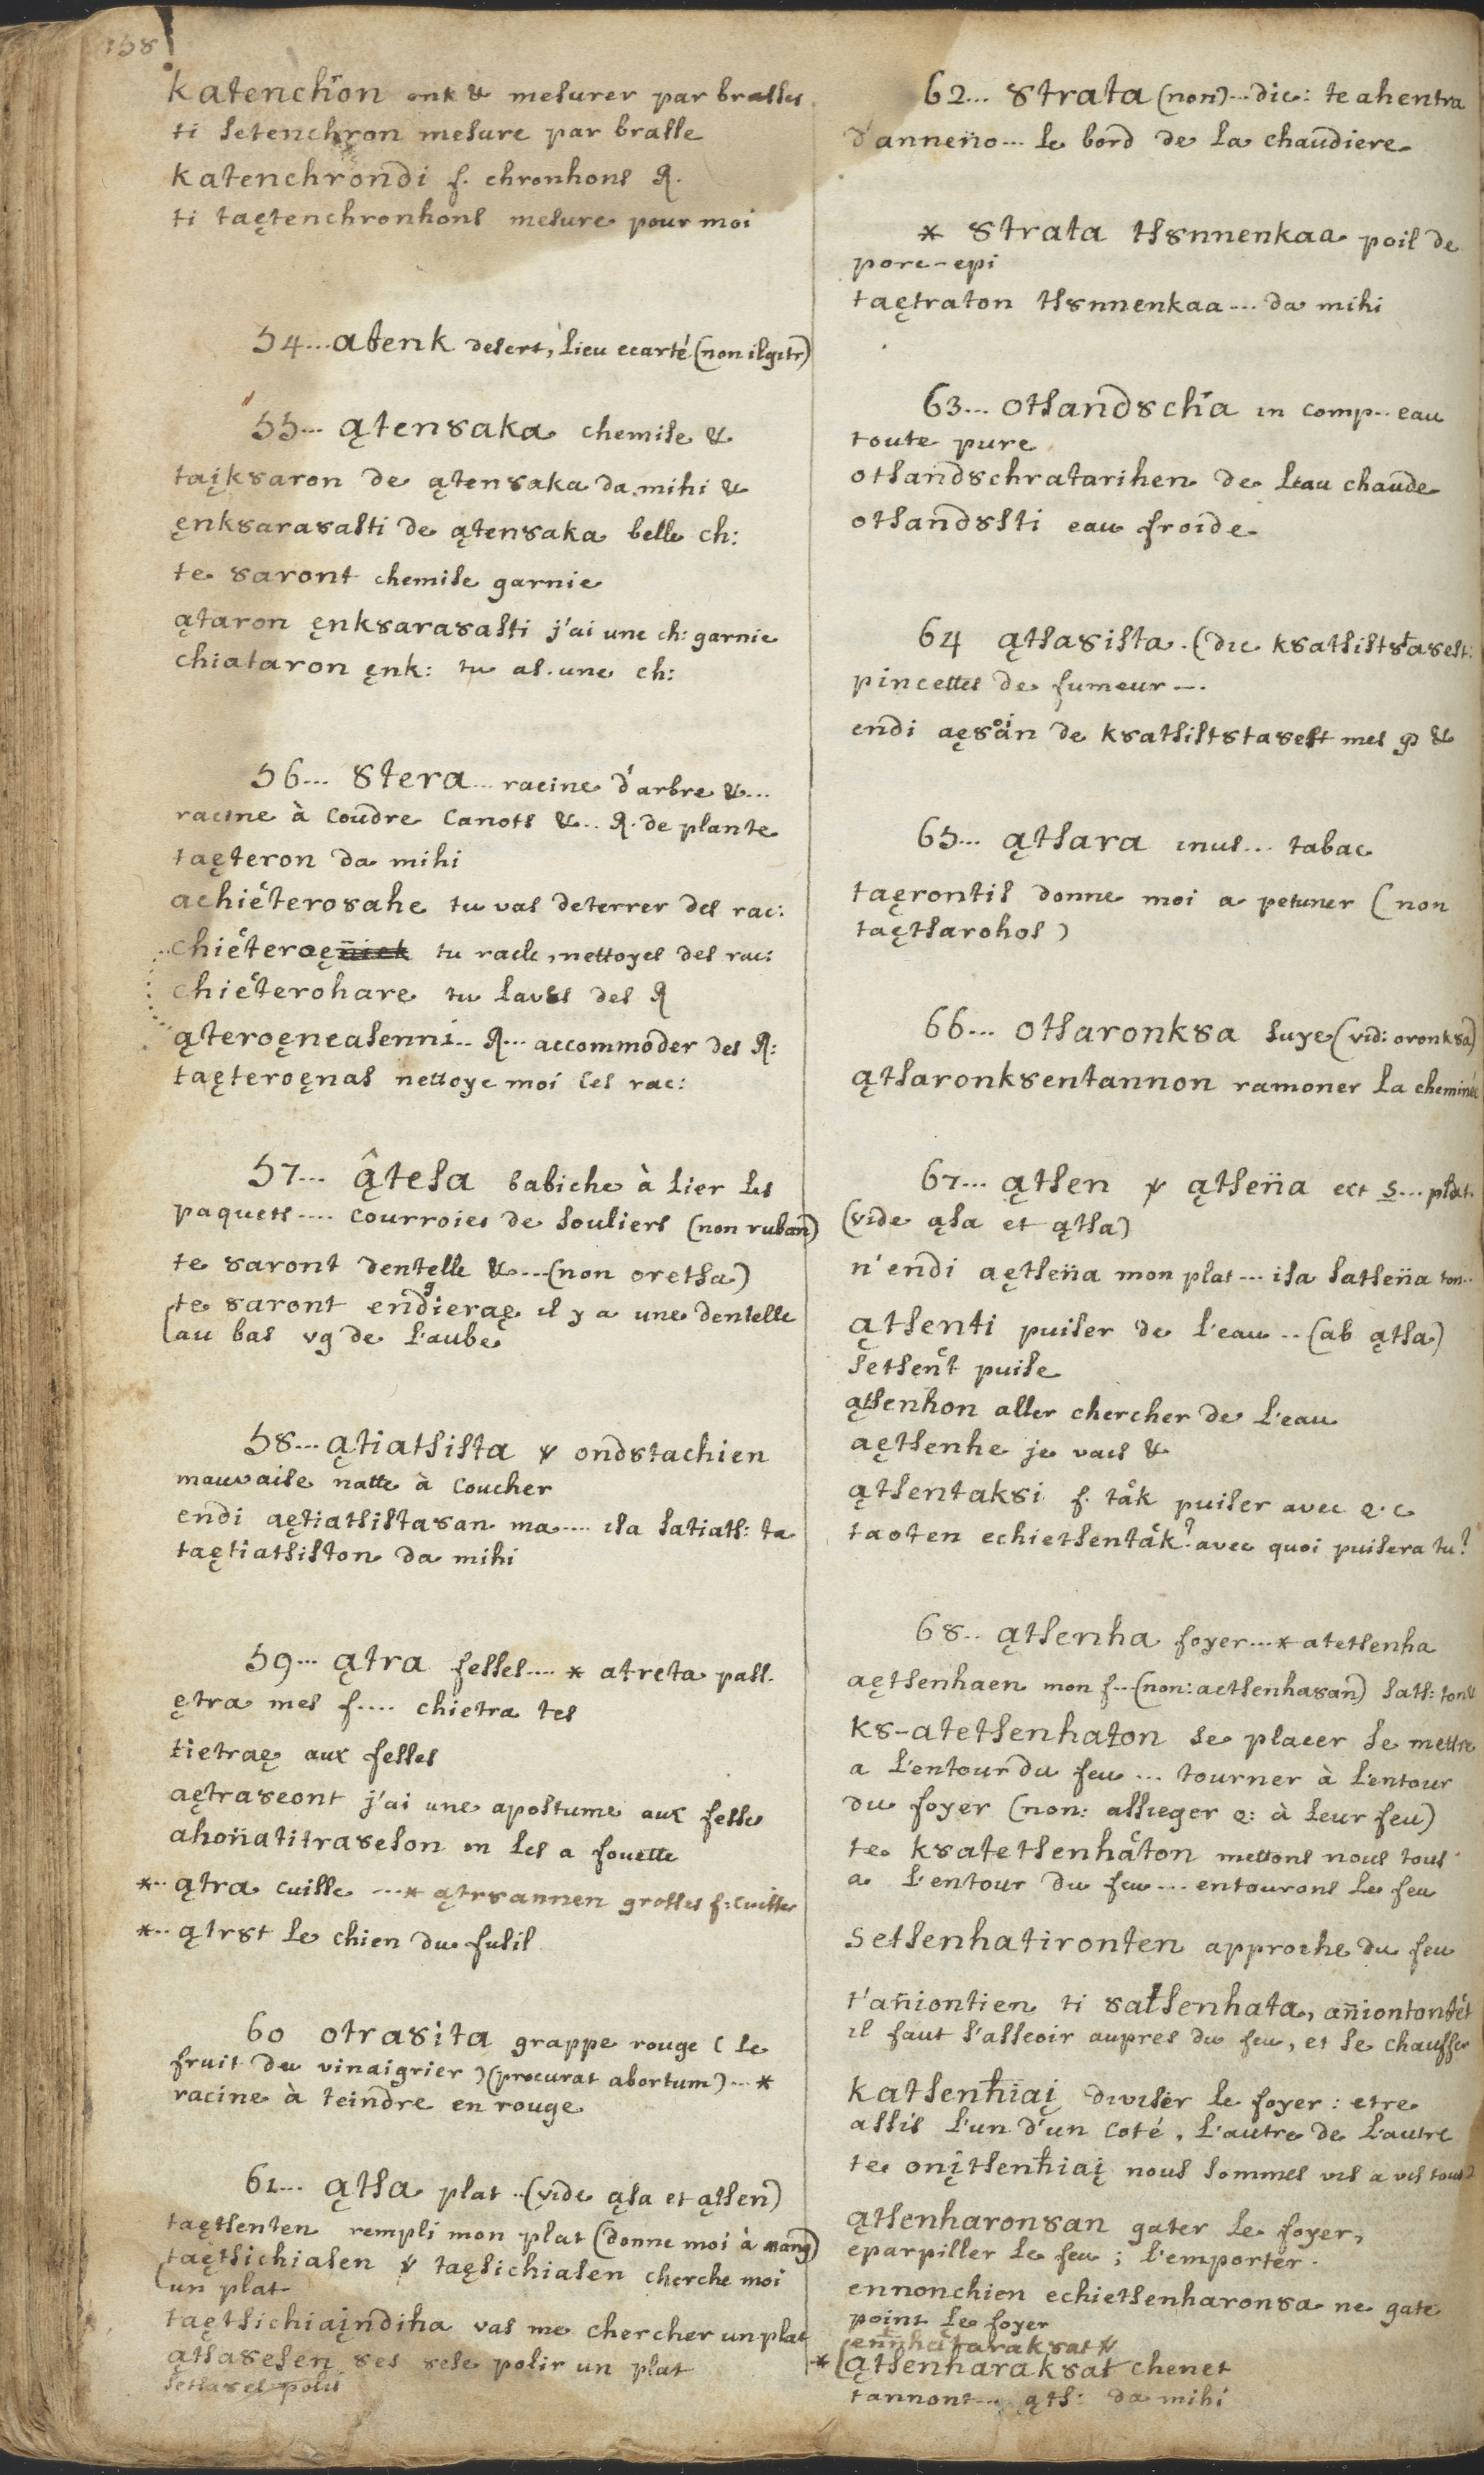 158
katenchron onk & mesurer par brasses
ti setenchron mesure par brasse
katenchrondi f. chronhons R.
ti taętenchronhons mesure pour moi
54... atenk desert, lieu ecarté (non ilgitr)
55... ątenȣaka chemise &
taįkȣaron de ątenȣaka da mihi &
ęnkȣaraȣasti de ątenȣaka belle ch:
te ȣaront chemise garnie
ątaron ęnkȣaraȣasti j'ai une ch: garnie
chiataron ęnk: tu as une ch:
56... ȣtera... racine d'arbre &...
racine à coudre canots &.. R. de plante
taęteron da mihi
achiéteroȣahe tu vas deterrer des rac:
chiéteroę tu racle, nettoyes des rac:
chiéterohare tu laves des R
ąteroęneasenni.. R... accommoder des R:
taęteroęnas nettoye moi ces rac:
57... ątesa babiche à lier les
paquets.... courroies de souliers (non ruban)
te ȣaront dentelle &....(non oretsa)
te ȣaront endierae il y a une dentelle
au bas vg de l'aube
58... ątiatsista ℣ ondȣtachien
mauvaise natte à coucher
endi aętiatsistaȣan ma.... isa satiats: ta
taętiatsiston da mihi
59... ątra fesses.... * atreta pass.
ętra mes f.... chietra tes
tietrae aux fesses
aętraȣeont j'ai une apostume aux fesse
ahon̈atitraȣeson on les a fouette
*.. ątra cuisse ...* ątrȣannen grosses f: cuisses
*.. ątrȣt le chien du fusil
60 otraȣita grappe rouge (le
fruit du vinaigrier) (procurat abortum)...*
racine à teindre en rouge
61... ątsa plat ..(vide ąsa et ątsen)
taętsenten rempli mon plat (donne moi à mang)
taętsichiasen ℣ taęsichiasen cherche moi
un plat
taętsichiaįndiha vas me chercher un plat
ątsaȣesen ȣes ȣese polir un plat
setsaȣes polis
62... ȣtrata (non)... dic: te ahentra
d'annen̈o... le bord de la chaudiere
* ȣtrata tsȣnnenkaa poil de
porc-epi
taętraton tsȣnnenkaa... da mihi
63... otsandȣchra in comp.. eau
toute pure
otsandȣchratarihen de leau chaude
otsandȣsti eau froide
64 ątsaȣista. (dic kȣatsistȣtaȣest:
pincettes de fumeur...
endi aęȣan de kȣatsistȣtaȣest mes p &
65... ątsara inus... tabac
taęrontis donne moi a petuner (non
taętsarohos)
66... otsaronkȣa suye (vid: oronkȣa)
ątsaronkȣentannon ramoner la cheminée
67... ątsen ℣ ątsen̈a ect S... plat.
(vide ąsa et ątsa)
n'endi aętsen̈a mon plat... isa satsen̈a ton..
ątsenti puiser de l'eau.. (ab ątsa)
setsent puise
ątsenhon aller chercher de l'eau
aętsenhe je vais &
ątsentakȣi f. tak puiser avec q.c
taoten echietsentak? avec quoi puisera tu?
68.. ątsenha foyer...* atetsenha
aętsenhaen mon f...(non: aetsenhaȣan) sats: ton &
kȣ-atetsenhaton se placer se mettre
a l'entour du feu... tourner à l'entour
du foyer (non: assieger q: à leur feu)
te kȣatetsenhaton mettons nous tous
a l'entour du feu... entourons le feu
Setsenhatironten approche du feu
t'an̈iontien ti ȣatsenhata,
il faut s'asseoir aupres du feu, et se chauffer
katsenhiaį diviser le foyer: etre
assis l'un d'un coté, l'autre de l'autre
te onįtsenhiaį nous sommes vis a vis tous 2
ątsenharonȣan gater le foyer,
eparpiller le feu; l'emporter.
ennonchien echietsenharonȣa ne gate
point le foyer
ennhatarakȣat ℣
* ątsenharakȣat chenet
tannont... ąts: da mihi